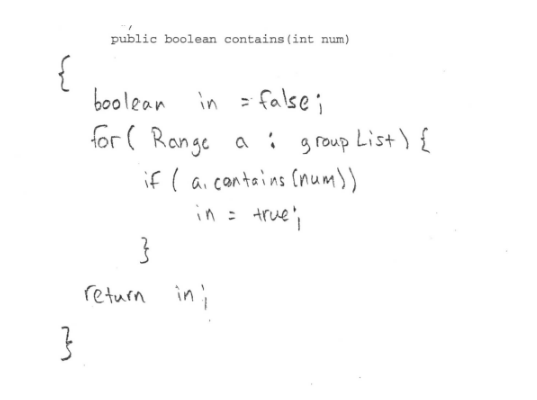 public boolean contains(int num)
{
boolean in = false;
for( Range a : groupList) {
if ( a.contains(num))
in = true;
}
return in;
}